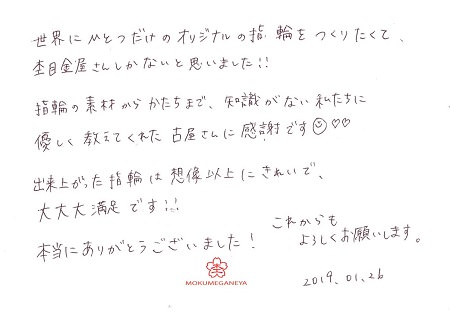 世界にひとつだけのオリジナルの指輪をつくりたくて、
杢目金屋さんしかないと思いました!!
指輪の素材からかたちまで、知識がない私たちに
優しく教えてくれた古屋さんに感謝です☺♡♡
出来上がった指輪は想像以上にきれいで、
大大大満足です!!
本当にありがとうございました!
これからも
よろしくお願いします。
MOKUMEGANEYA
2019.01.26